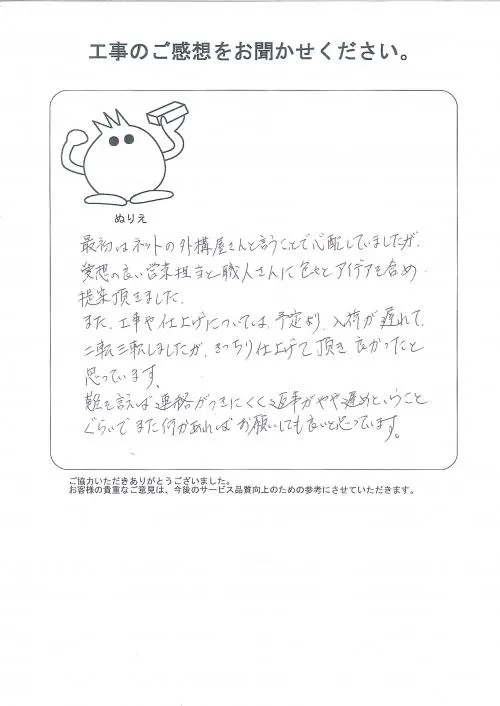 工事のご感想をお聞かせください。
ぬりえ
最初はネットの外構屋さんと言うことで心配していましたが、
愛想の良い営業担当と職人さんに色々とアイデアを含め
提案頂きました。
また、工事や仕上げについては、予定より、入荷が遅れて、
二転三転しましたが、きっちり仕上げて頂き良かったと
思っています。
難を言えば連絡がつきにくく返事がやや遅めということ
ぐらいでまた何かあればお願いしても良いと思っています。
ご協力いただきありがとうございました。
お客様の貴重なご意見は、今後のサービス品質向上のための参考にさせていただきます。